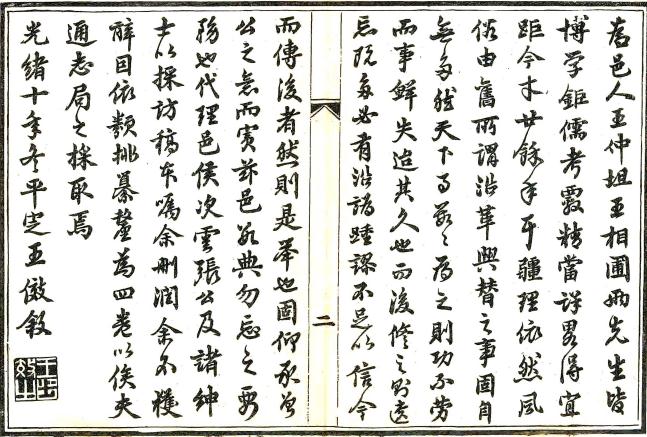 為邑人王仲坦王相圃兩先生皆
博學鉅儒考覈精當詳畧得宜
距今才廿餘年耳疆理依然風
俗由舊所謂沿革興替之事固自
無多然天下事數々為之則功不勞
而事鮮失迨其久也而後修之則遺
忘既多必有沿譌踵謬不足以信今
二
而傳後者然則是舉也固仰承曾
公之意而實茲邑數典勿忘之要
務也代理邑侯次雲張公及諸紳
士以採訪稿本囑余刪潤余不獲
辭因依類排纂釐為四卷以俟夫
通志局之採取焉
光緒十年冬平定王儆敘